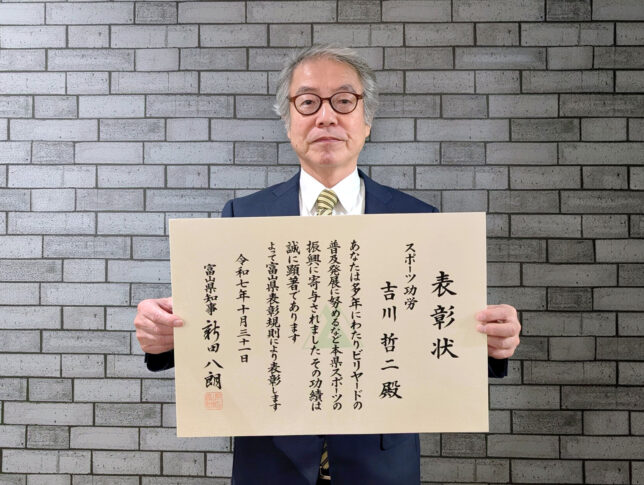 表彰状
スポーツ功労
吉川 哲二 殿
あなたは多年にわたりビリヤードの
普及発展に努めるなど本県スポーツの
振興に寄与されました その功績は
誠に顕著であります
よって富山県表彰規則により表彰します
令和七年十月三十一日
富山県知事 新田八朗